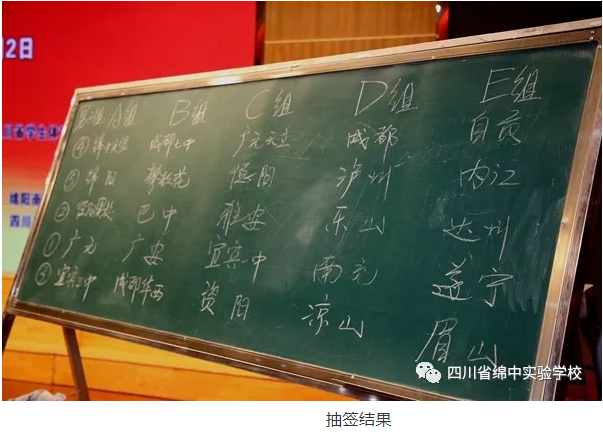 2日
川省学生体
绵阳南
四川
A组 B组 C组 D组 E组
④ 成都七中 广元天立 成都 自贡
③ 绵阳 攀枝花 德阳 泸州 内江
② 巴中 雅安 乐山 达州
① 广元 广安 宜宾中 南充 遂宁
⑤ 宜宾三中 成都华西 资阳 凉山 眉山
四川省绵中实验学校
抽签结果